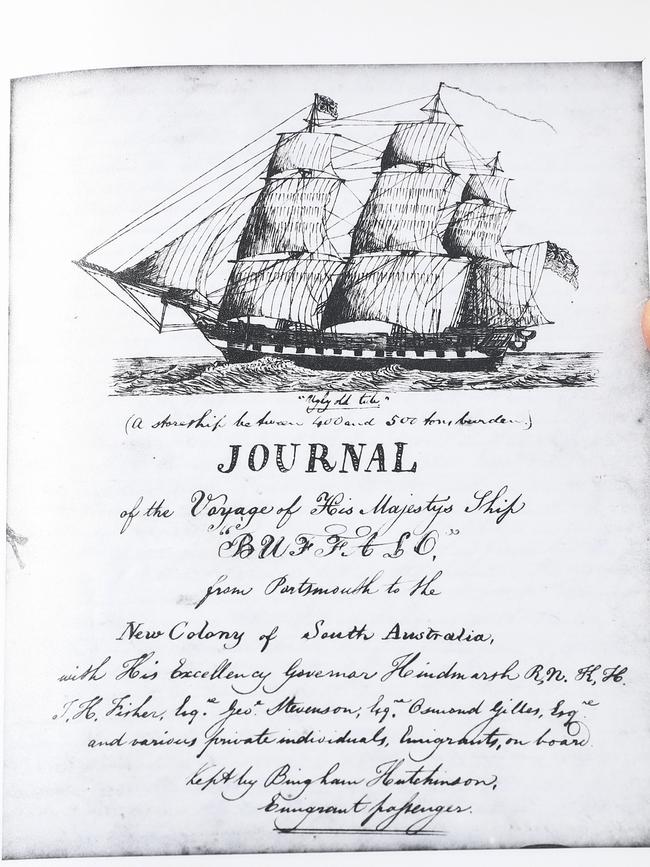 "Ugly old tub"
(A storeship between 400 and 500 tons burden.)
JOURNAL
of the Voyage of His Majestys Ship
"BUFFALO",
from Portsmouth to the
New Colony of South Australia,
with His Excellency Governor Hindmarsh R,N. K, H.
J, H. Fisher, Esq.re Geo.e Stevenson, Esq.re Osmond Gilles, Esq.re
and various private individuals, Emigrants, on board.
Kept by Bingham Hutchinson,
Emigrant passenger.